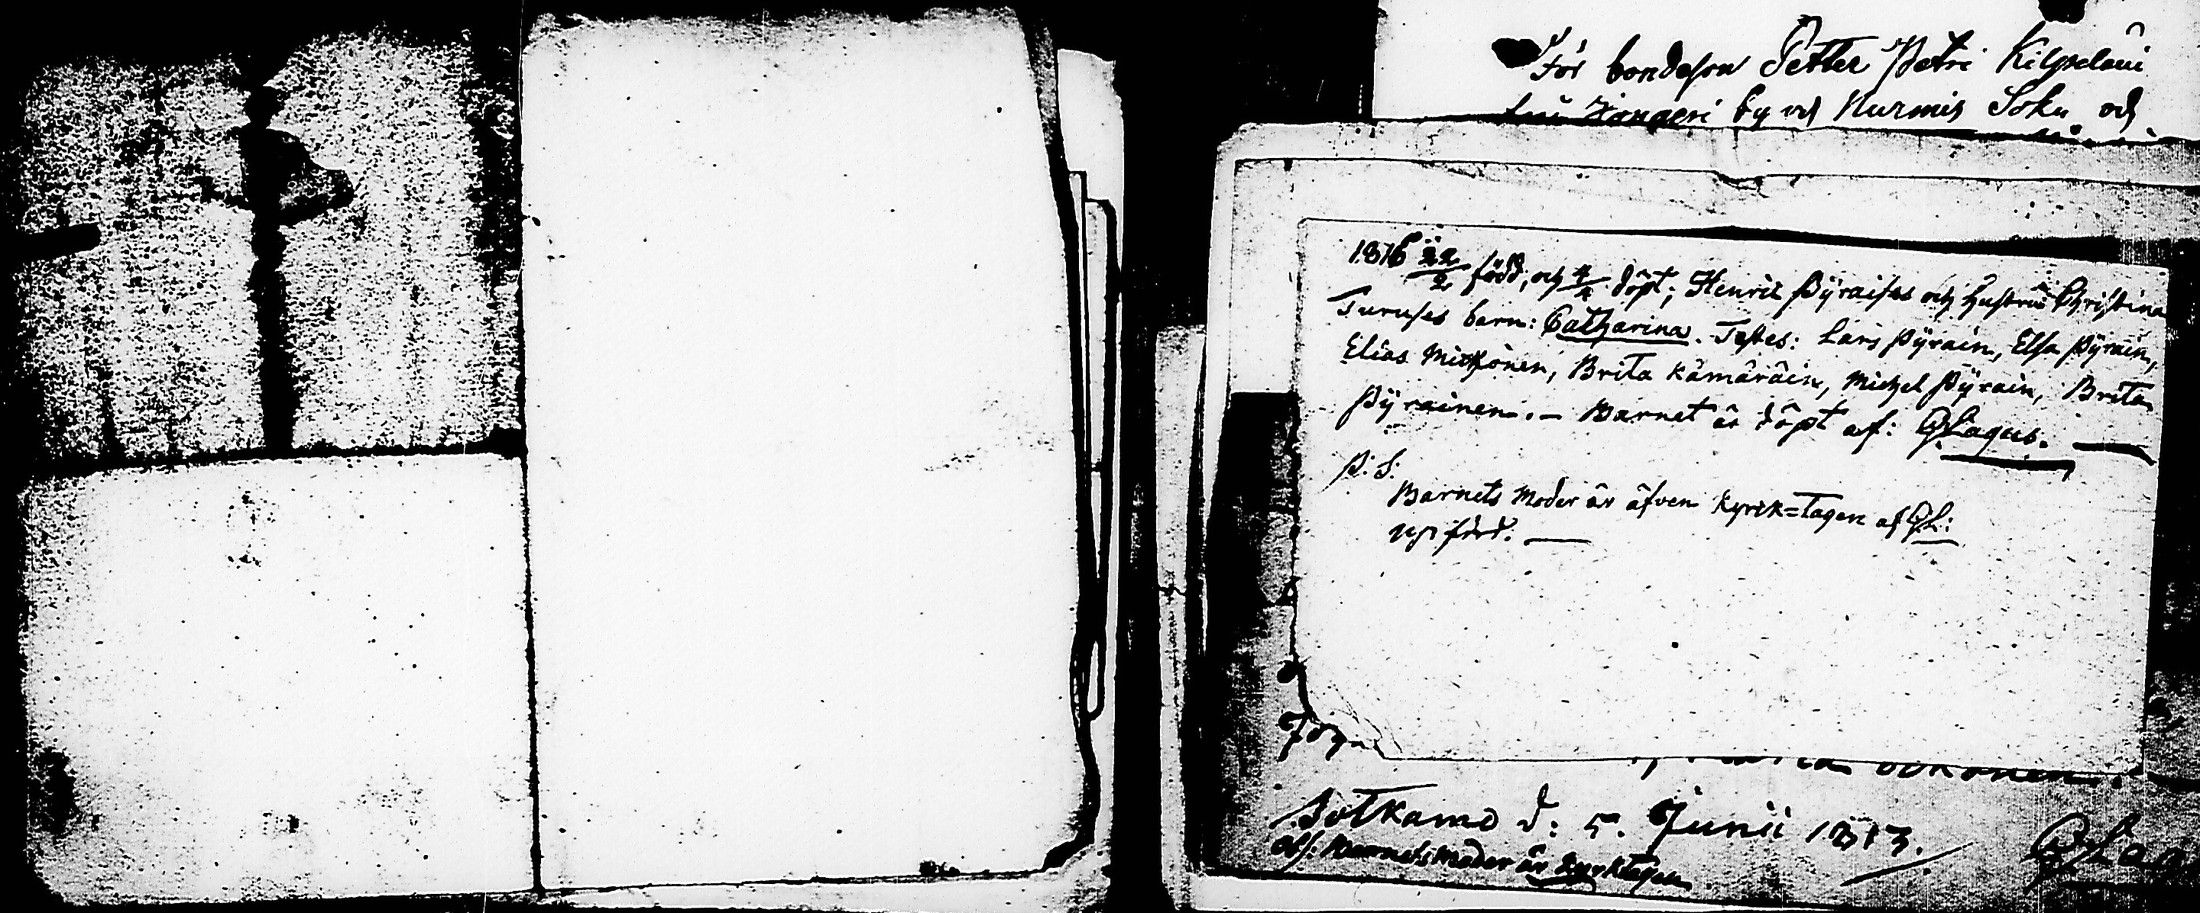 För bondeson Petter Petri Kilpeläin
by och Nurmis Sokn och
1816 22/2 född, och 4/4 döpt; Henric Pyraises och hustrus Christina
Turuses barn: Catharina. Testes: Lars Pÿrain, Elsa Pÿrain,
Elias Mitchonen, Brita Kämäräin, Michel Pÿrain, Brita
Pÿrainen. — Barnet är döpt af: GLagus. —
P: S:
Barnets Moder är äfven Kyrk=tagen af GL:
Sotkamo d: 5. Junii 1813.
Barnets Moder är Kyrktagen